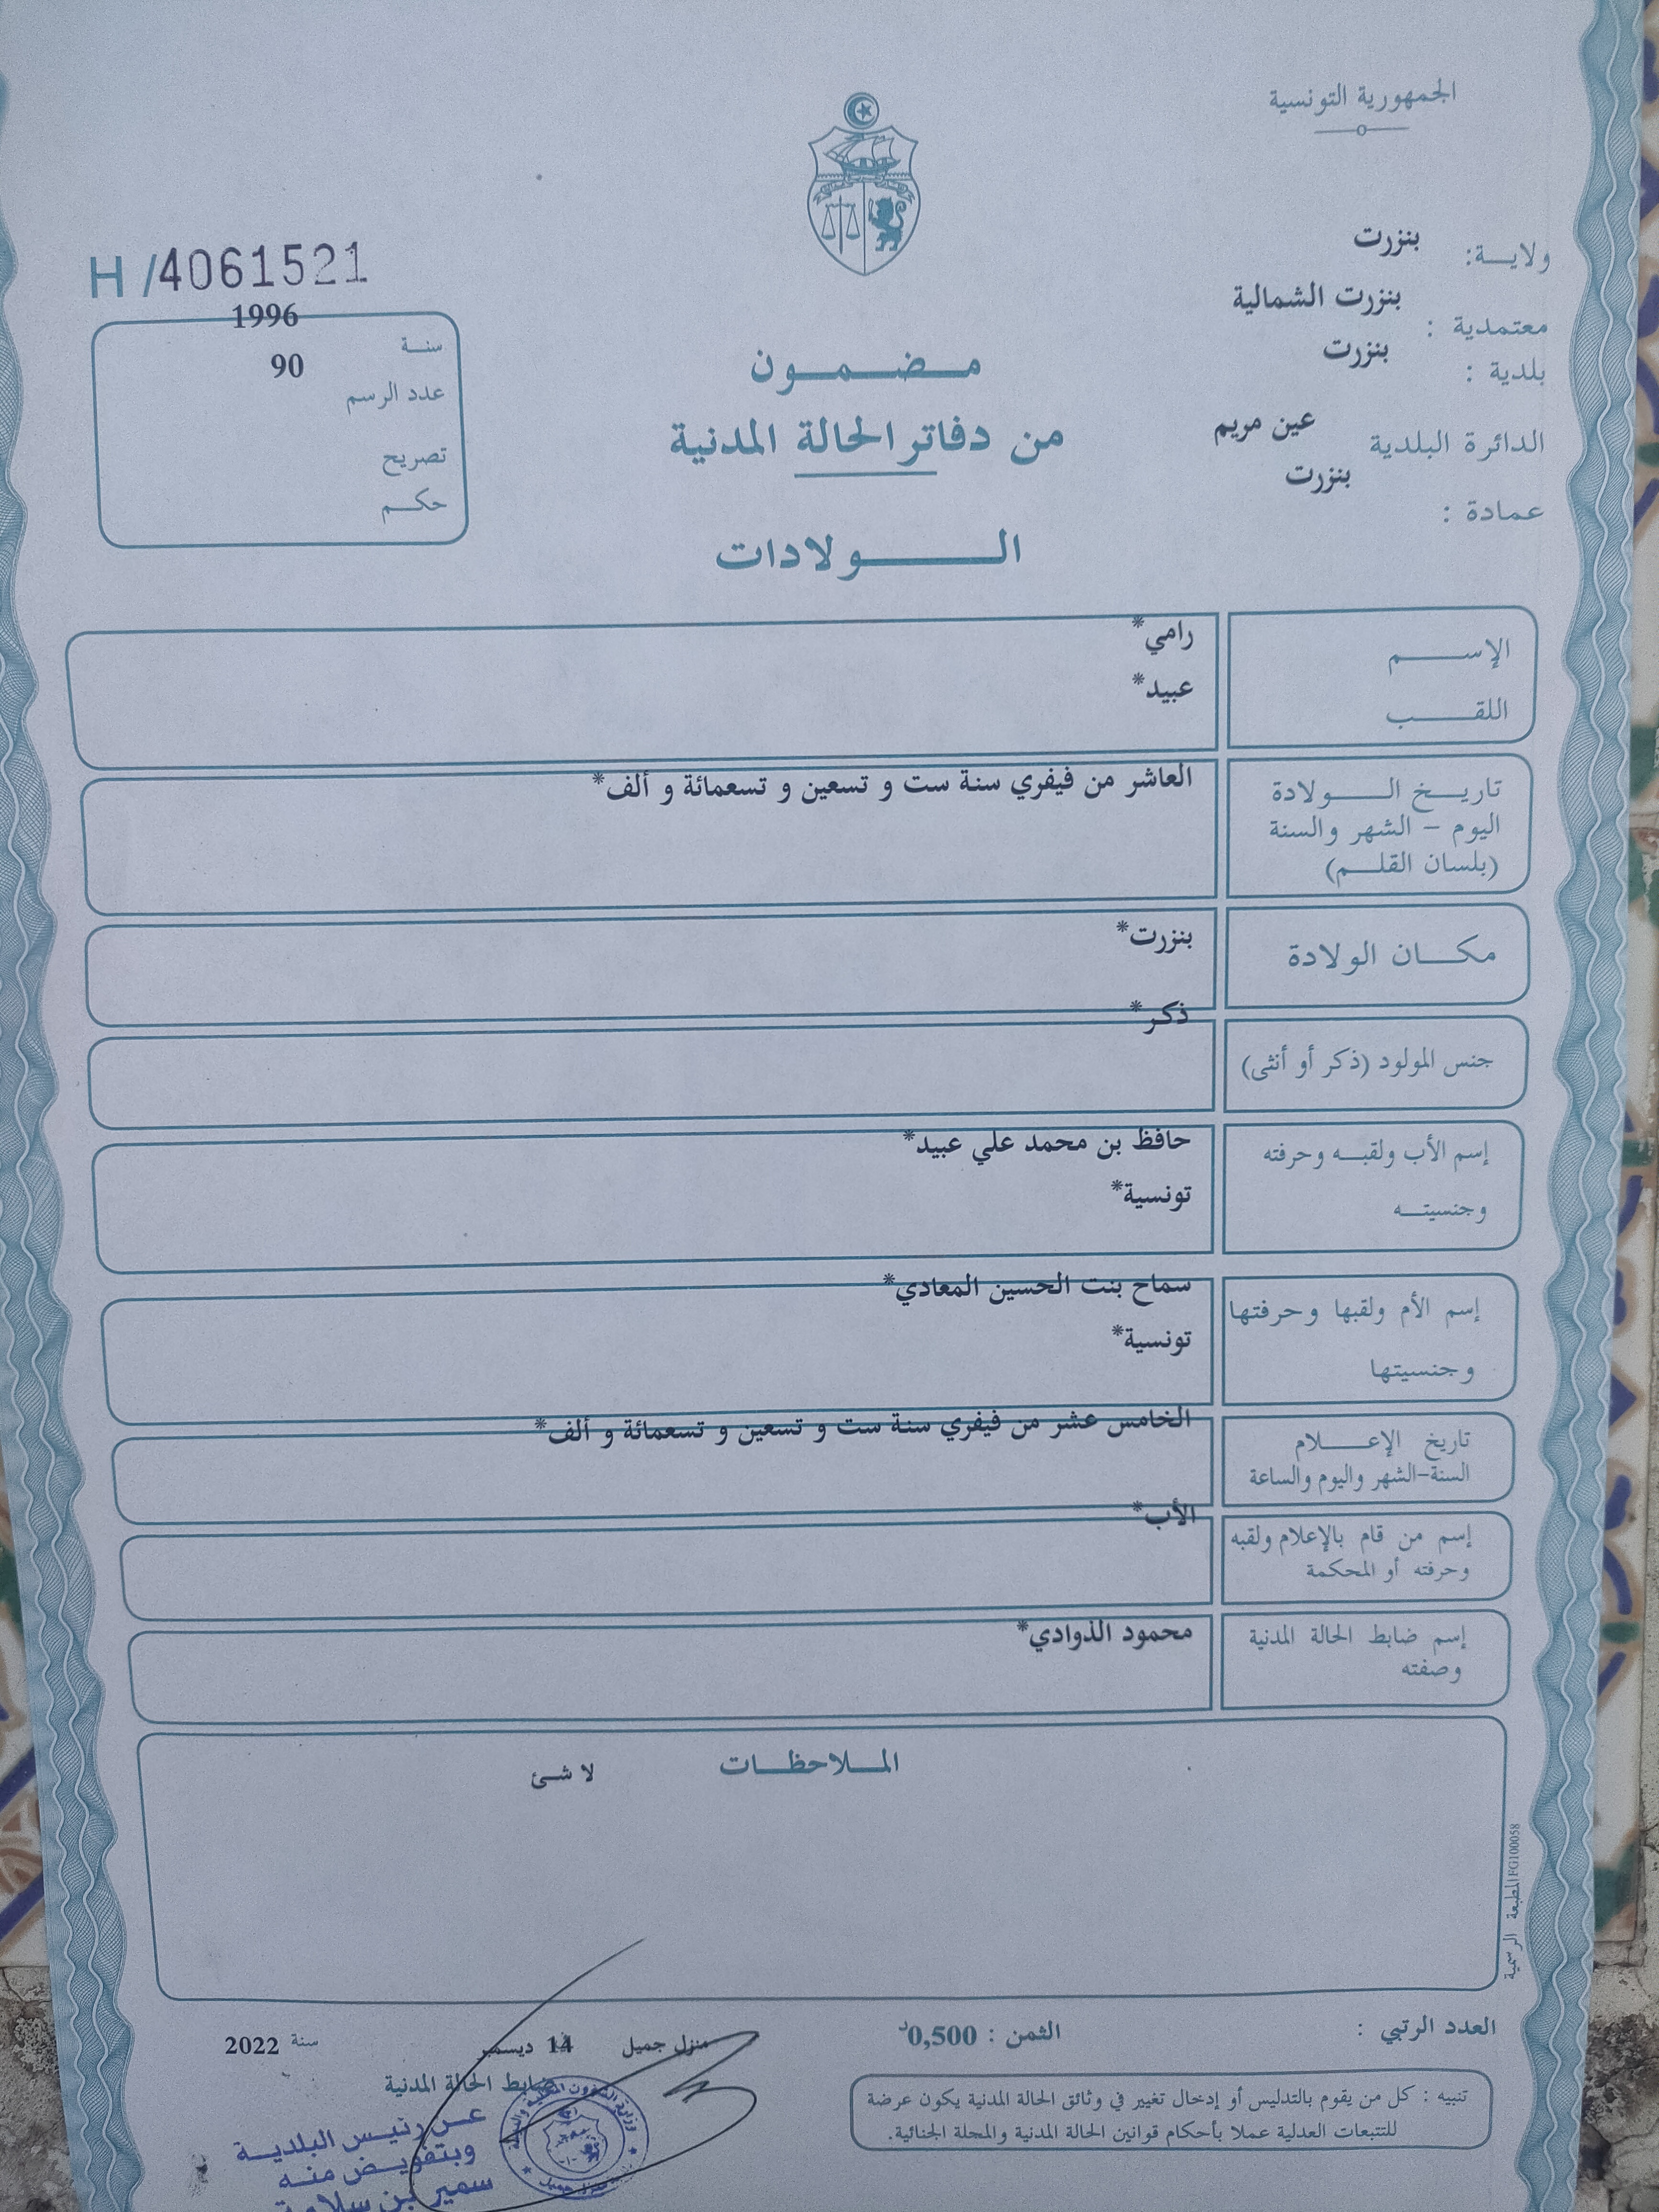 الجمهورية التونسية
ولاية: بنزرت
معتمدية : بنزرت الشمالية
بلدية : بنزرت
الدائرة البلدية عين مريم
عمادة : بنزرت
H /4061521
سنة 1996
عدد الرسم 90
تصريح
حكم
مضمون
من دفاتر الحالة المدنية
الولادات
الإسم رامي*
اللقب عبيد*
تاريخ الولادة العاشر من فيفري سنة ست و تسعين و تسعمائة و ألف*
اليوم - الشهر والسنة
(بلسان القلم)
مكان الولادة بنزرت*
جنس المولود (ذكر أو أنثى) ذكر*
إسم الأب ولقبه وحرفته حافظ بن محمد علي عبيد*
وجنسيته تونسية*
إسم الأم ولقبها وحرفتها سماح بنت الحسين المعادي*
وجنسيتها تونسية*
تاريخ الإعلام الخامس عشر من فيفري سنة ست و تسعين و تسعمائة و ألف*
السنة-الشهر واليوم والساعة
إسم من قام بالإعلام ولقبه الأب*
وحرفته أو المحكمة
إسم ضابط الحالة المدنية محمود الذوادي*
وصفته
الملاحظات
لا شئ
المطبعة الرسمية FG100058
العدد الرتبي :
الثمن : 0,500د
منزل جميل 14 ديسمبر سنة 2022
ضابط الحالة المدنية
عن رئيس البلدية
وبتفويض منه
سمير بن
تنبيه : كل من يقوم بالتدليس أو إدخال تغيير في وثائق الحالة المدنية يكون عرضة
للتتبعات العدلية عملا بأحكام قوانين الحالة المدنية والمجلة الجنائية.